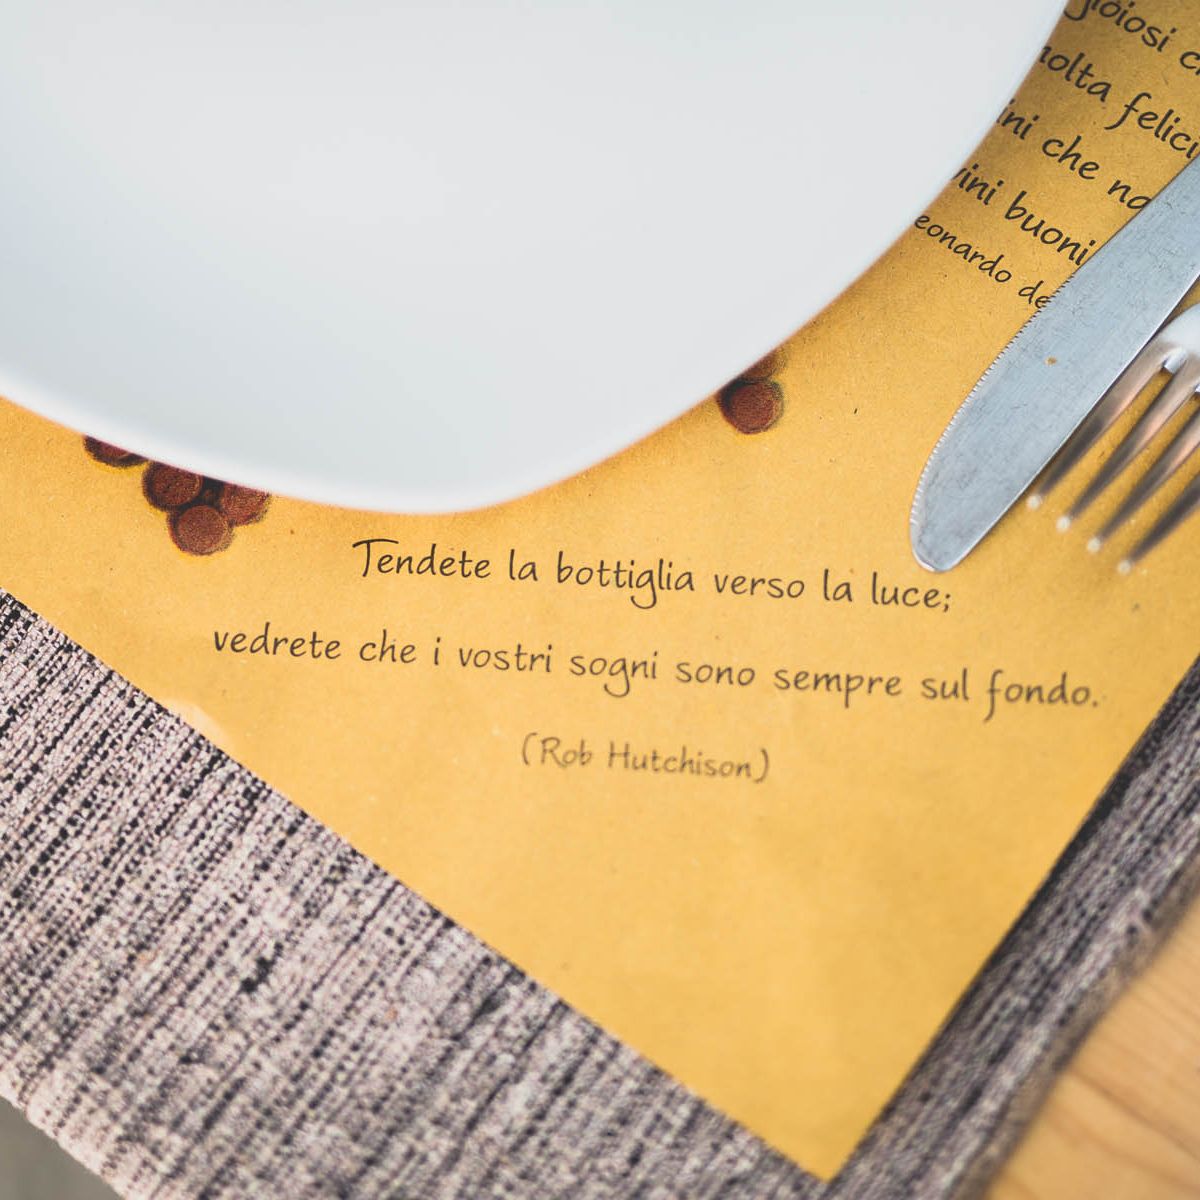 gioiosi
molta
che
vini buoni
Tendete la bottiglia verso la luce;
vedrete che i vostri sogni sono sempre sul fondo.
(Rob Hutchison)